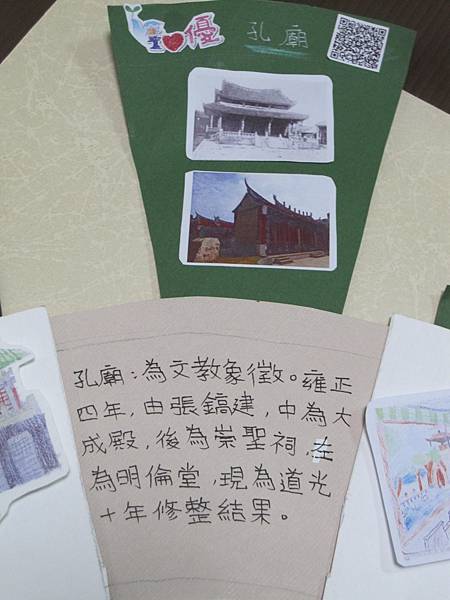 優 孔廟
孔廟：為文教象徵。雍正
四年，由張鎬建，中為大
成殿，後為崇聖祠，左
為明倫堂，現為道光
十年修整結果。